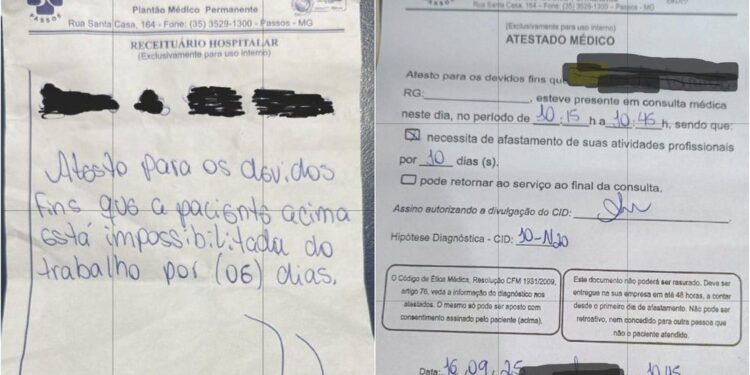 PASSOS
Plantão Médico Permanente
Rua Santa Casa, 164 - Fone: (35) 3529-1300 - Passos - MG
RECEITUÁRIO HOSPITALAR
(Exclusivamente para uso interno)
Atesto para os devidos
fins que a paciente acima
está impossibilitada do
trabalho por (06) dias.
PASSOS
Rua Santa Casa, 164 - Fone: (35) 3529-1300 - Passos - MG
(Exclusivamente para uso interno)
ATESTADO MÉDICO
Atesto para os devidos fins que
RG: , esteve presente em consulta médica
neste dia, no período de 10:15 h a 10:45 h, sendo que:
necessita de afastamento de suas atividades profissionais
por 10 dias (s).
pode retornar ao serviço ao final da consulta.
Assino autorizando a divulgação do CID:
Hipótese Diagnóstica - CID: 10-N20
O Código de Ética Médica, Resolução CFM 1931/2009,
artigo 76, veda a informação do diagnóstico nos
atestados. O mesmo só pode ser aposto com
consentimento assinado pelo paciente (acima).
Este documento não poderá ser rasurado. Deve ser
entregue na sua empresa em até 48 horas, a contar
desde o primeiro dia de afastamento. Não pode ser
retroativo, nem concedido para outra pessoa que
não o paciente atendido.
Data: 16,09,25